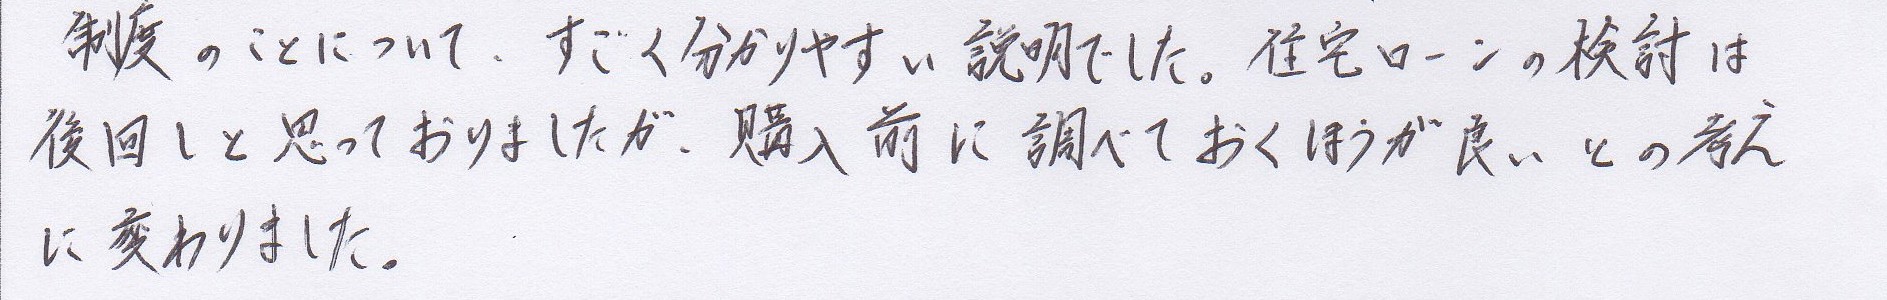 制度のことについて、すごく分かりやすい説明でした。住宅ローンの検討は
後回しと思っておりましたが、購入前に調べておくほうが良いとの考え
に変わりました。